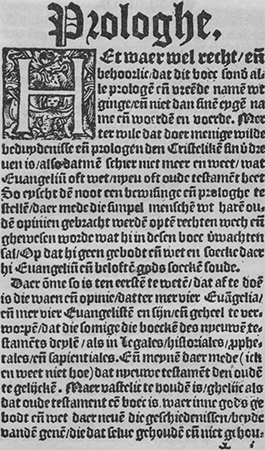 Prologhe.
HEt waer wel recht/ eñ
behoorlic/ dat dit boec sond al
le prologē eñ vreēde namē wt
ginge/ eñ niet dan sinē eygē na
me eñ woerdē en voerde. Mer
ter wilē dat doer menige wilde
beduydenisse eñ prologen den Cristelikē sin v̄dre
uen is/ also datmē schier niet meer en weet/ wat
Euangeliū oft wet/ nyeu oft oude testamēt heet
So eyscht dē noot een bewisinge eñ prologhe te
stellē/ daer mede die simpel menschē wt harē ou⸗
dē opinien gebracht werdē optē rechten wech eñ
ghewesen wordē wat hi in desen boec v̄wachten
sal/ Op dat hi geen gebodt eñ wet en soecke daer
hi Euangeliū eñ beloftē gods soeckē soude.
Daer ōme so is ten eerstē te wetē/ dat af te doē
is die waen eñ opinie/ datter mer vier Euāgelia/
eñ mer vier Euangelistē en sijn/ eñ geheel te ver⸗
worpē/ dat die somige die boeckē des nyeuwē te⸗
stamēts deylē/ als in Legales/ historiales/ pphe⸗
tales/ eñ sapientiales. Eñ meynē daer mede (ick
en weet niet hoe) dat nyeuwe testamēt dē oudē
te gelijckē. Maer vastelic te houdē is/ ghelijc als
dat oude testament eē boec is/ waer inne gods ge
bodt eñ wet daer neuē die geschiedenissen/ beyde
vandē genē/ die dat selue gehoudē eñ niet gehou⸗